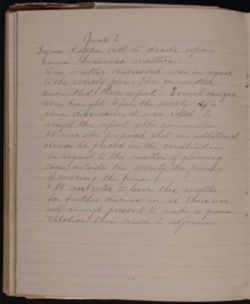 June 7
Sigma Kappa met to decide upon
some business matters.
One matter discussed was in regard
to the society pins. The committee
submitted their report. Several designs
were brought before the society. After
some discussion it was voted to
accept the report of the committee.
It was also proposed that an additional
clause be placed in the constitution
in regard to the matter of allowing
those outside the society the privilege
of wearing the pins.
It was voted to leave this matter
for further discussion as there was
not enough present to make a quorum.
Motion then made to adjourn.